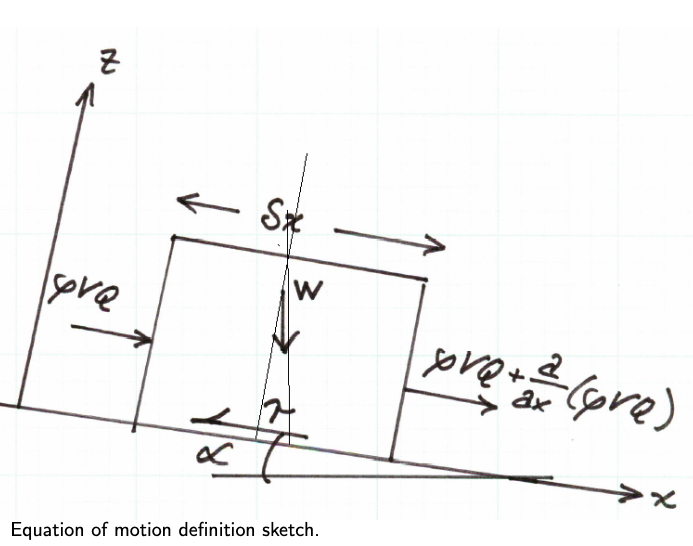 z
δx
ρVQ
W
ρVQ + ∂/∂x (ρVQ)
τ
α
x
Equation of motion definition sketch.